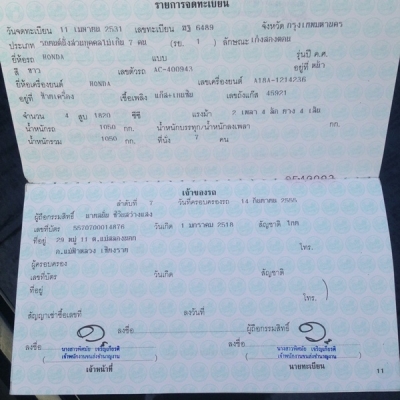 รายการจดทะเบียน
วันจดทะเบียน 11 เมษายน 2531 เลขทะเบียน 6489 จังหวัด กรุงเทพมหานคร
ประเภท รถยนต์นั่งส่วนบุคคลไม่เกิน 7 คน (รย. 1) ลักษณะ เก๋งสองตอน
ยี่ห้อรถ HONDA แบบ รุ่นปี ค.ศ.
สี ขาว เลขตัวรถ AC-400943 อยู่ที่
ยี่ห้อเครื่องยนต์ HONDA เลขเครื่องยนต์ A18A-1214236
อยู่ที่ ข้างเครื่อง เชื้อเพลิง เลขถังแก๊ส 45921
จำนวน 4 สูบ 1820 ซีซี แรงม้า 2 เพลา 4 ล้อ ยาง 4 เส้น
น้ำหนักรถ 1050 กก. น้ำหนักบรรทุก/น้ำหนักลงเพลา กก.
น้ำหนักรวม 1050 กก. ที่นั่ง 7 คน
เจ้าของรถ
ลำดับที่ 7 วันที่ครอบครองรถ 14 กันยายน 2555
ผู้ถือกรรมสิทธิ์
เลขที่บัตร 5570700014876 วันเกิด 1 มกราคม 2518 สัญชาติ ไทย
ที่อยู่ 29 หมู่ 11 ต.แม่สลองนอก
อ.แม่ฟ้าหลวง เชียงราย โทร.
ผู้ครอบครอง
เลขที่บัตร วันเกิด สัญชาติ
ที่อยู่
โทร.
สัญญาเช่าซื้อเลขที่ ลงวันที่
ลงชื่อ ผู้ถือกรรมสิทธิ์
ลงชื่อ ลงชื่อ
เจ้าพนักงานขนส่งชำนาญงาน เจ้าพนักงานขนส่งชำนาญงาน
เจ้าหน้าที่ นายทะเบียน
11